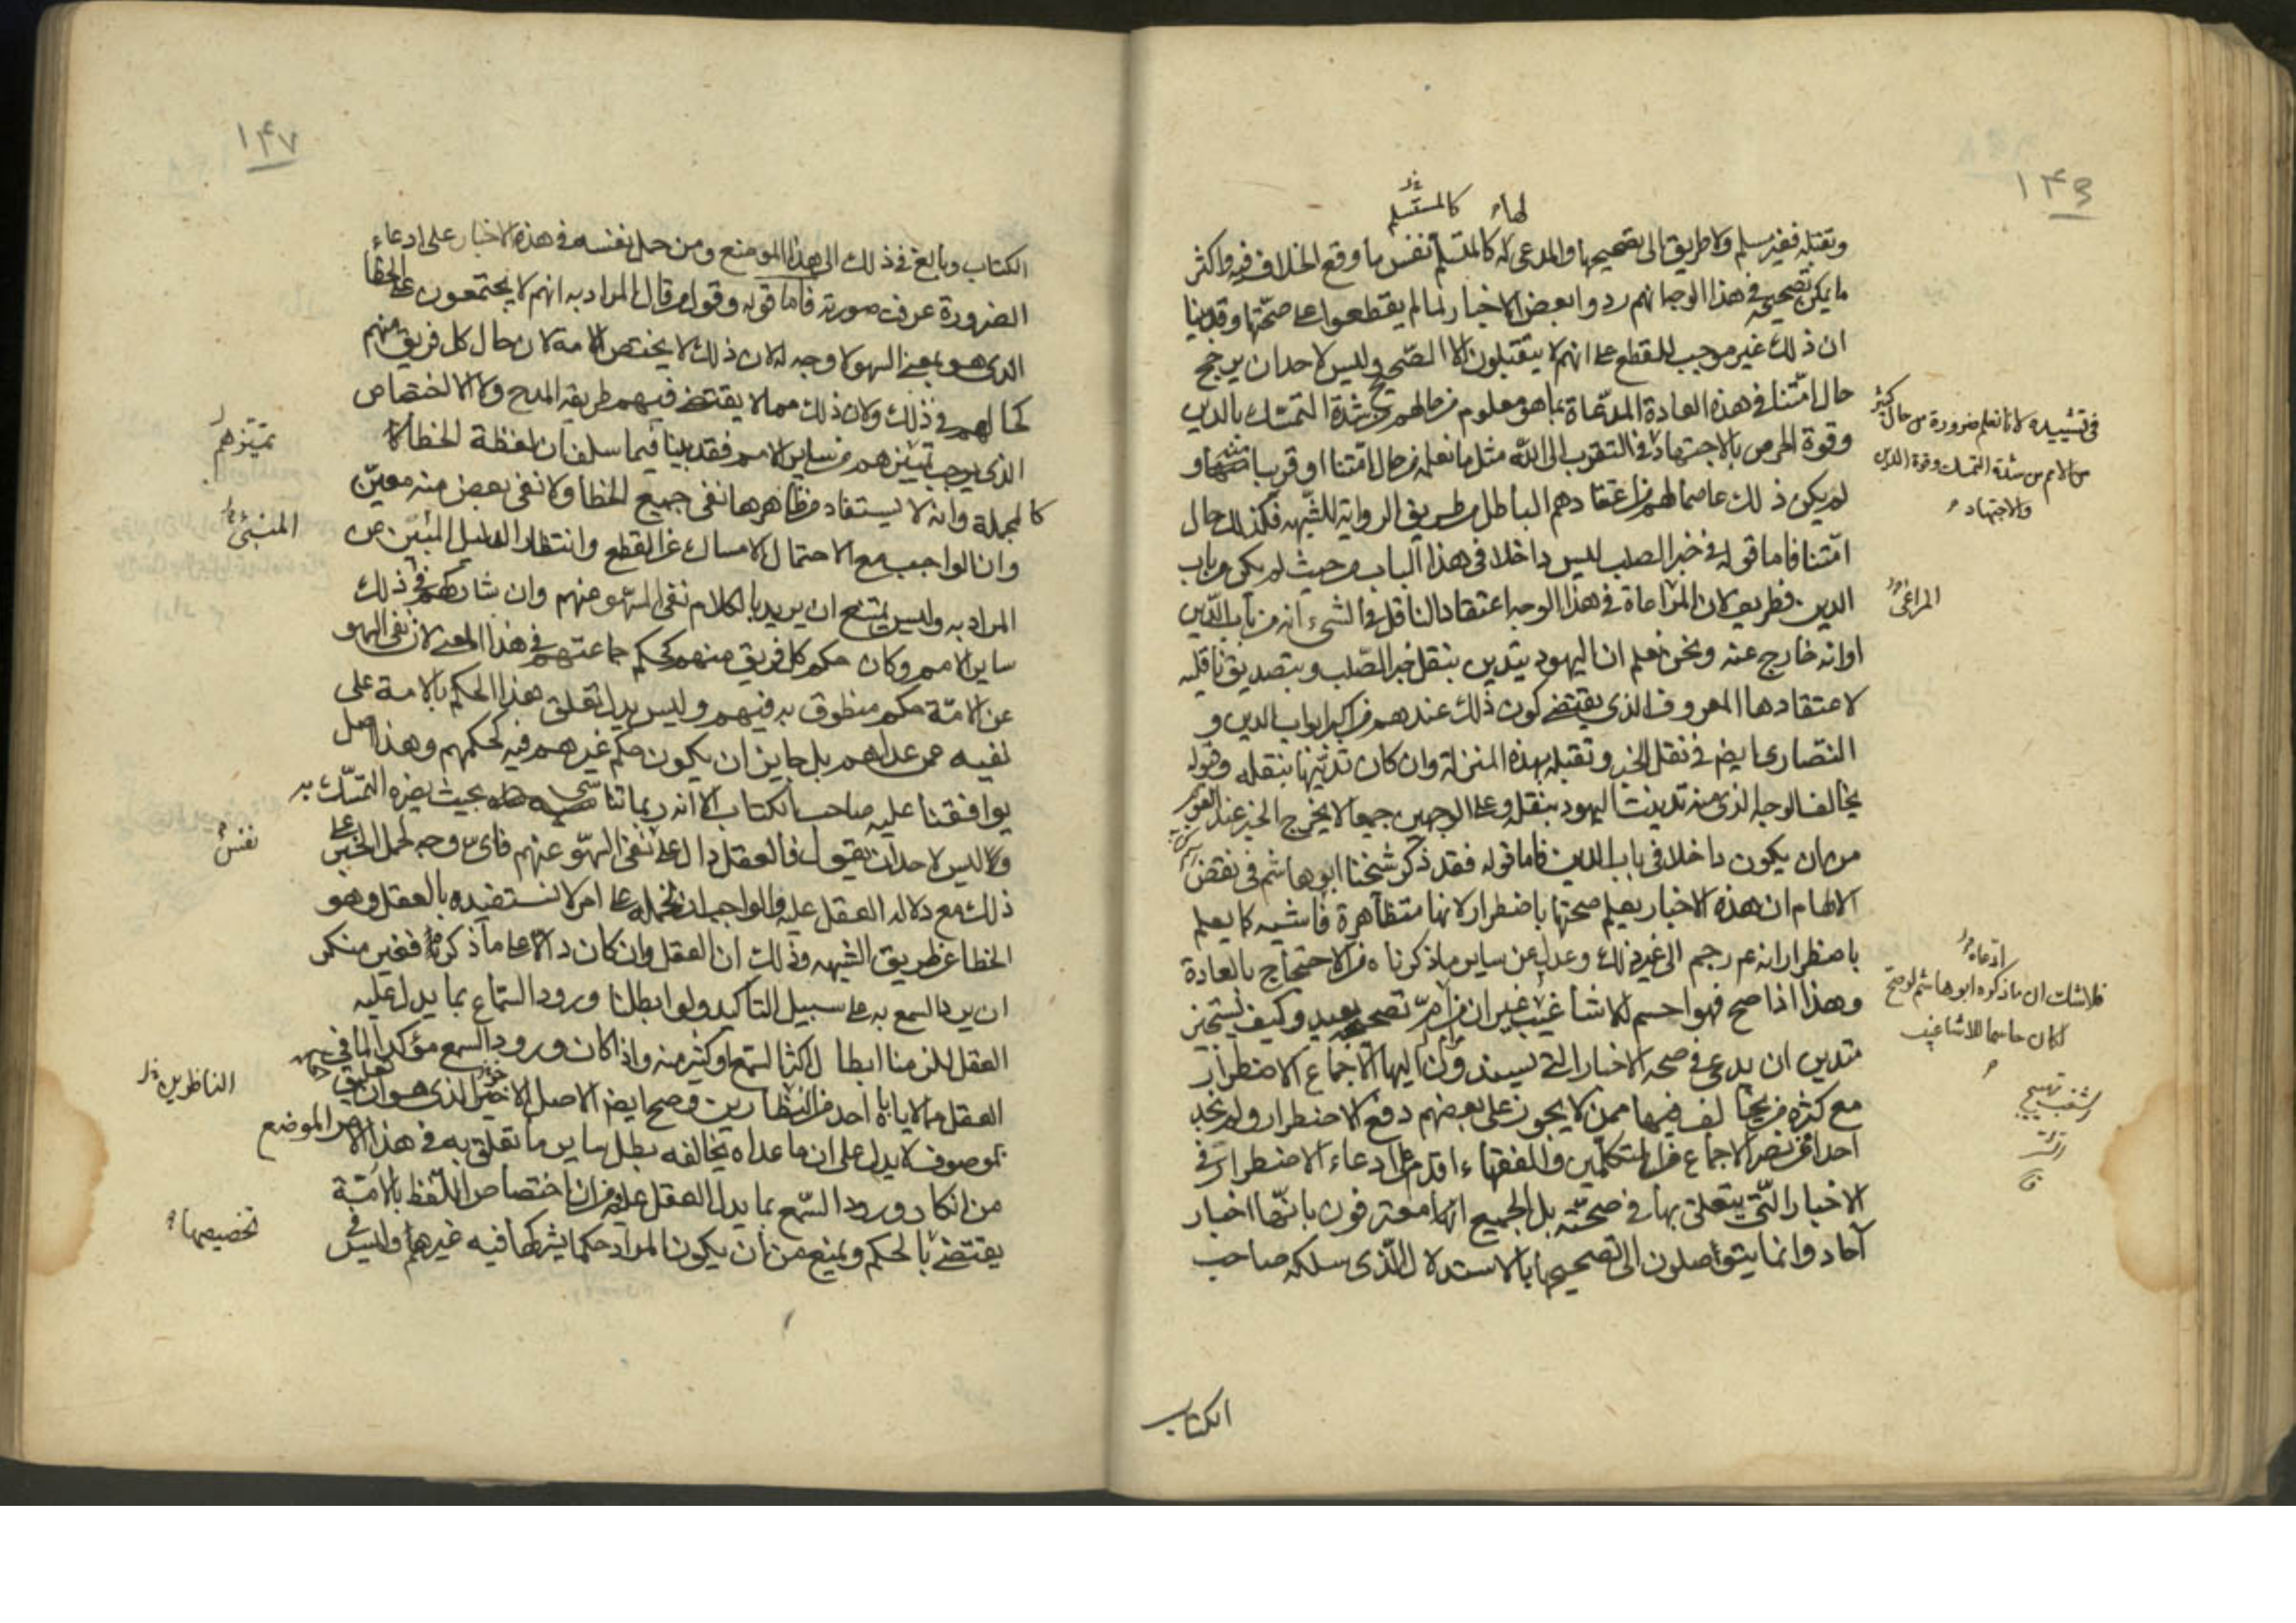 ١٤٣
لها كالمستسلم
وتقبله فغير مسلم ولا طريق الى تصحيحها والمدعى له كالمتسلم نفس ما وقع الخلاف فيه واكثر
ما يمكن تصحيحه في هذا الوجه انهم ردوا بعض الاخبار لما لم يقطعوا على صحتها وقد بينا
ان ذلك غير موجب للقطع على انهم لا يتقبلون الا الصحيح وليس لاحد ان يرجح
حال امتنا في هذه العادة المدعاة بما هو معلوم من حالهم من شدة التمسك بالدين
وقوة الحرص بالاجتهاد في التقرب الى الله مثل ما نعلمه من حال امتنا او قريبا منه و
لم يكن ذلك عاصما لهم من اعتقادهم الباطل من طريق الرواية للشبهه فكذلك حال
امتنا فاما قوله في خبر الصلب ليس داخلا في هذا الباب من حيث لم يكن من باب
الدين فطريف لان المراعاة في هذا الوجه اعتقاد الناقل في الشيء انه من باب الدين
او انه خارج عنه ونحن نعلم ان اليهود يتدين بنقل خبر الصلب وبتصديق ناقليه
لاعتقادها المعروف الذي يقتضي كون ذلك عندهم من اكبر ابواب الدين و
النصارى ايضا في نقل الخبر وتقبله بهذه المنزلة وان كان تدينها بنقله وقبوله
يخالف الوجه الذي منه تدينت اليهود بنقله وعلى الوجهين جميعا لا يخرج الخبر عند القوم
من ان يكون داخلا في باب الدين فاما قوله فقد ذكر شيخنا ابو هاشم في نقض
الالهام ان هذه الاخبار يعلم صحتها باضطرار لانها متظاهرة فاشيه كما يعلم
باضطرار انه عم رجم الى غير ذلك وعدل عن ساير ما ذكرناه من الاحتجاج بالعادة
وهذا اذا صح فهو احسم للاشاغيب غير ان مرام تصحيحه بعيد وكيف يستجيز
متدين ان يدعي في صحه الاخبار التي يسندون اليها الاجماع الاضطرار
مع كثرة من يخالف فيها ممن لا يجوز على بعضهم دفع الاضطرار ولم نجد
احدا ممن نصر الاجماع من المتكلمين والفقهاء اقدم على ادعاء الاضطرار في
الاخبار التي يتعلق بها في صحته بل الجميع معترفون بانها اخبار
آحاد وانما يتوصلون الى تصحيحها بالاستدلال الذي سلكه صاحب
الكتاب
في تشييده لانا نعلم ضرورة من حال كثير
من الامم من شدة التمسك وقوة الدين
والاجتهاد
المراعى
ادعاه
فلا شك ان ما ذكره ابو هاشم لو صح
لكان حاسما للاشاغيب
١٤٧
الكتاب وبالغ في ذلك الى هذا الموضع ومن حمل نفسه في هذه الاخبار على ادعاء
الضرورة عرف صورته فاما قوله وقول من قال المراد به انهم لا يجتمعون على الخطا
الذي هو بمعنى السهو لا وجه له لان ذلك لا يختص الامة لان حال كل فريق منهم
كحالهم في ذلك ولان ذلك مما لا يقتضي فيهم طريقه المدح ولا الاختصاص
الذي يوجب تميزهم من ساير الامم فقد بينا فيما سلف ان لفظة الخطأ
كالمجملة وانه لا يستفاد من ظاهرها نفي جميع الخطأ ولا نفي بعض منه معين
وان الواجب مع الاحتمال الامساك عن القطع وانتظار الدليل المبين عن
المراد به وليس يمتنع ان يريد بالكلام نفي السهو منهم وان شاركهم في ذلك
ساير الامم وكان حكم كل فريق منهم كحكم جماعتهم في هذا المعنى لان نفي السهو
عن الامة حكم منطوق به فيهم وليس يدل تعلق هذا الحكم بالامة على
نفيه عمن عداهم بل جايز ان يكون حكم غيرهم فيه كحكمهم وهذا اصل
يوافقنا عليه صاحب الكتاب الا انه ربما تناساه بحيث يضره التمسك به
وليس لاحد ان يقول فالعقل دال على نفي السهو عنهم فاي وجه لحمل الخبر على
ذلك مع دلاله العقل عليه والواجب ان نحمله على امر لا نستفيده بالعقل وهو
الخطا عن طريق الشبهه وذلك ان العقل وان كان دالا على ما ذكر فغير منكر
ان يرد السمع به على سبيل التاكيد ولو ابطلنا ورود السماع بما يدل عليه
العقل للزمنا ابطال اكثر السمع او كثير منه واذا كان ورود السمع مؤكدا لما في
العقل مما لا ياباه احد من النظارين وصح ايضا الاصل الاخير الذي هو ان تعليق الحكم
بموصوف لا يدل على ان ما عداه يخالفه بطل ساير ما تعلق به في هذا الموضع
من انكار ورود السمع بما يدل العقل عليه من ان اختصاص اللفظ بالامة
يقتضي بالحكم ويمنع من ان يكون المراد حكما يشركها فيه غيرها وليس في
تميزهم
المنبئ
نفس
الناظرين
تخصيصها